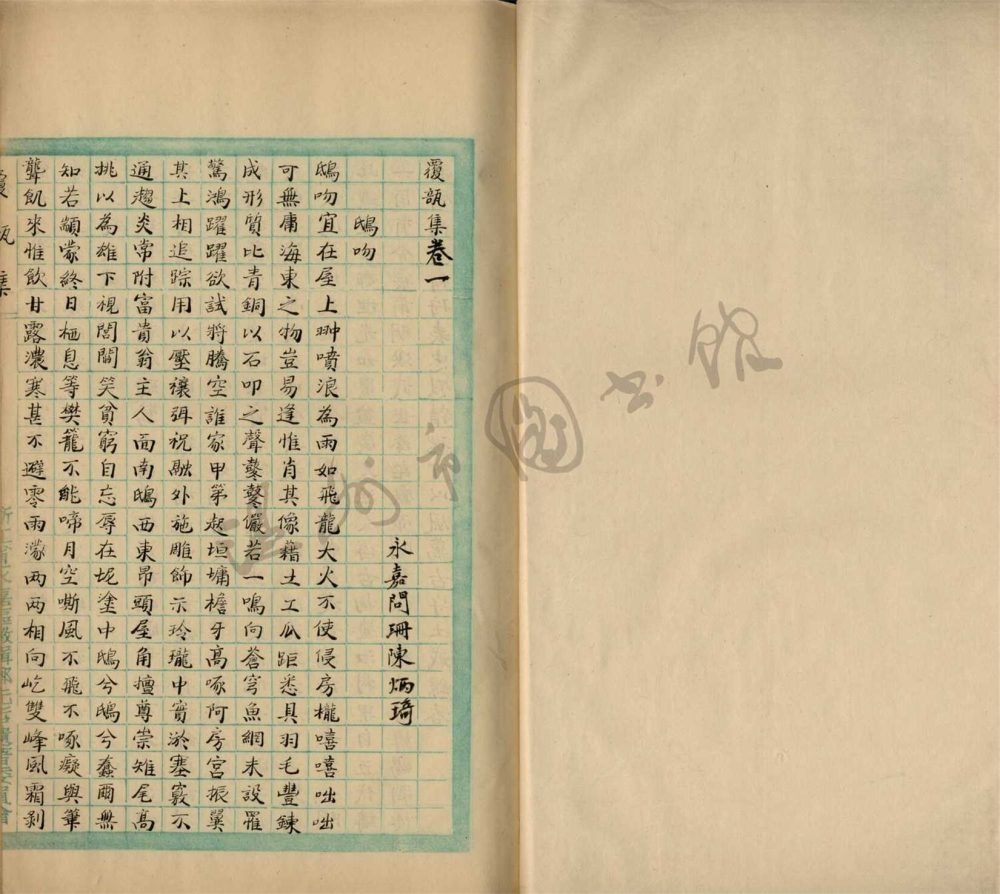 覆瓿集卷一
永嘉問珊陳炳琦
鴟吻
鴟吻宜在屋上翀噴浪為雨如飛龍大火不使侵房櫳嘻嘻咄咄
可無庸海東之物豈易逢惟肖其像藉土工瓜距悉具羽毛豐鍊
成形質比青銅以石叩之聲鼕鼕儼若一鳴向蒼穹魚網未設罹
驚鴻躍躍欲試將騰空誰家甲第起垣墉檐牙高啄阿房宮振翼
其上相追踪用以壓禳弭祝融外施雕飾示玲瓏中實淤塞竅不
通趨炎常附富貴翁主人面南鴟西東昂頭屋角擅尊崇雉尾高
挑以為雄下視閭閻笑貧窮自忘辱在坭塗中鴟兮鴟兮蠢爾無
知若顓蒙終日栖息等樊籠不能啼月空嘶風不飛不啄癡與
聾飢來惟飲甘露濃寒甚不避零雨濛兩兩相向屹雙峰風霜剝
覆瓿集
溫州市圖書館